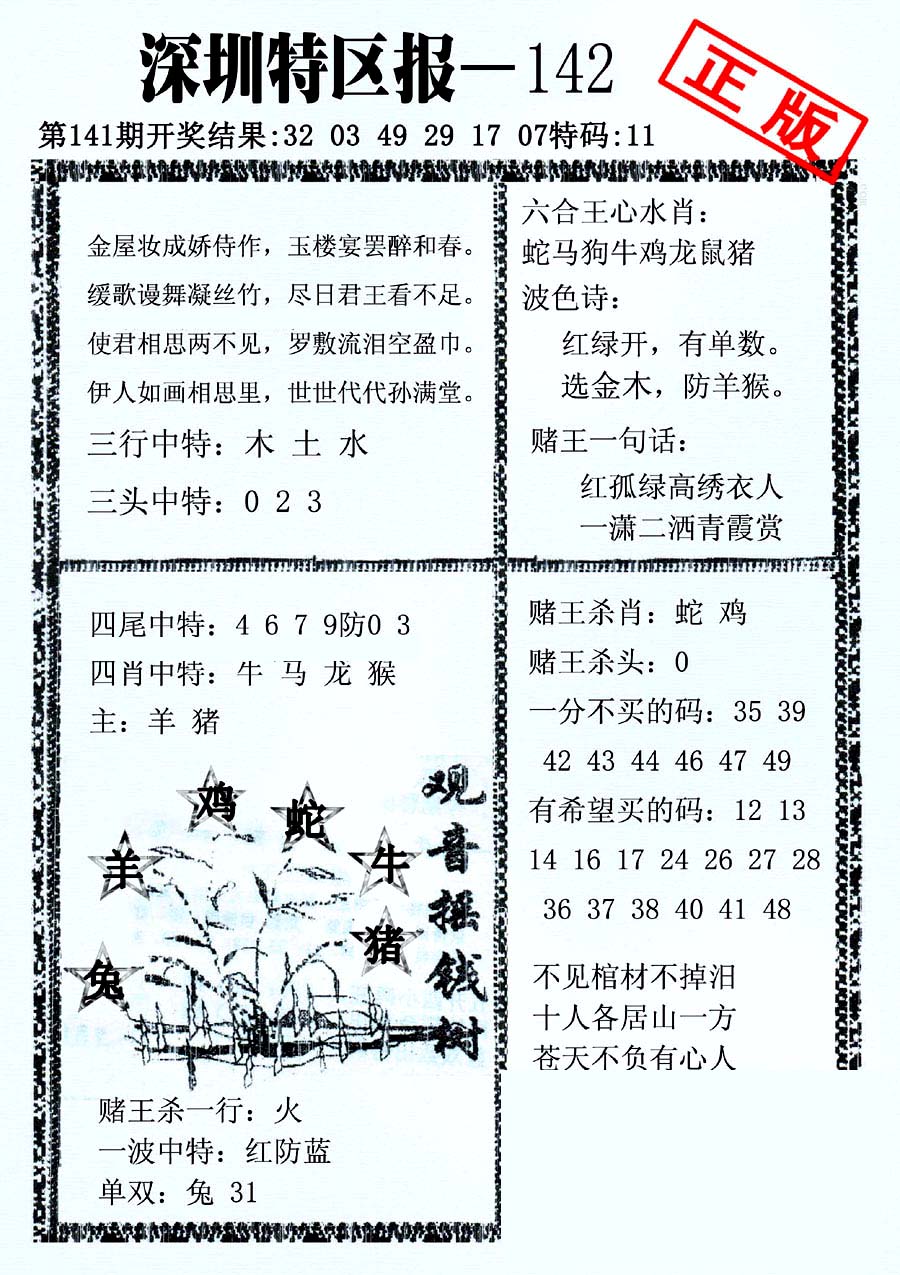 深圳特区报—142
正版
第141期开奖结果:32 03 49 29 17 07特码:11
金屋妆成娇侍作，玉楼宴罢醉和春。
缓歌谩舞凝丝竹，尽日君王看不足。
使君相思两不见，罗敷流泪空盈巾。
伊人如画相思里，世世代代孙满堂。
三行中特：木 土 水
三头中特：0 2 3
六合王心水肖：
蛇马狗牛鸡龙鼠猪
波色诗：
红绿开，有单数。
选金木，防羊猴。
赌王一句话：
红孤绿高绣衣人
一潇二洒青霞赏
四尾中特：4 6 7 9防0 3
四肖中特：牛 马 龙 猴
主：羊 猪
鸡
蛇
羊
牛
猪
兔
观音摇钱树
赌王杀一行：火
一波中特：红防蓝
单双：兔 31
赌王杀肖：蛇 鸡
赌王杀头：0
一分不买的码：35 39
42 43 44 46 47 49
有希望买的码：12 13
14 16 17 24 26 27 28
36 37 38 40 41 48
不见棺材不掉汨
十人各居山一方
苍天不负有心人